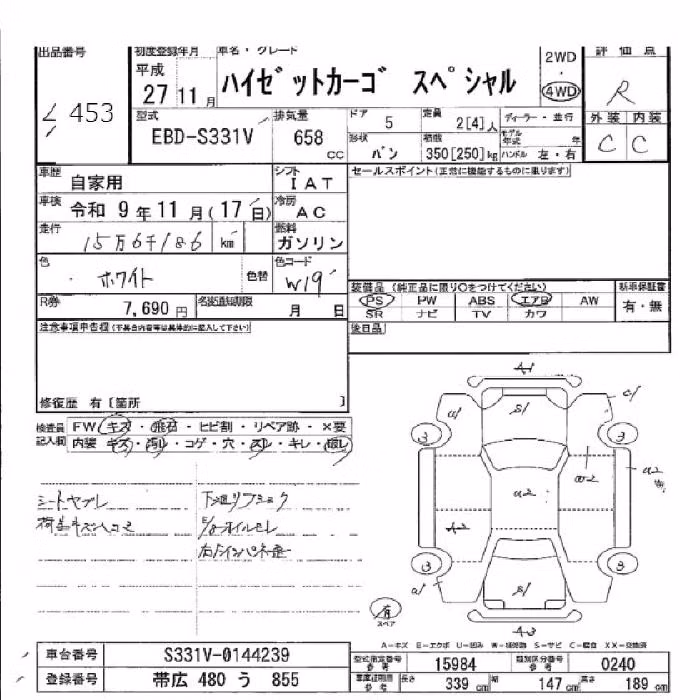 出品番号
453
初度登録年月
平成
27 11月
車名・グレード
ハイゼットカーゴ スペシャル
2WD
・
4WD
評価点
R
外装 内装
C C
型式
EBD-S331V
排気量
658
cc
ドア
5
定員
2[4]人
ディーラー・並行
形状
バン
積載
350[250]kg
モデル年式 年
ハンドル 左・右
車歴
自家用
シフト
IAT
セールスポイント(正常に機能するものに限ります)
車検
令和 9年 11月(17日)
冷房
AC
走行
15万6千186 km
燃料
ガソリン
色
ホワイト
色替
色コード
W19
装備品 (純正品に限り○をつけてください)
PS PW ABS エアB AW
SR ナビ TV カワ
新車保証書
有・無
R券
7,690円
名変通知期限
月 日
後日品
注意事項申告欄(不具合内容等は具体的に記入して下さい)
修復歴 有〔箇所 〕
検査員記入欄
FW キズ・飛石・ヒビ割・リペア跡・×要
内装 キズ・汚レ・コゲ・穴・スレ・キレ・破レ
シートヤブレ
A1
S1
a1
c1
3
3
a2
w2
a2
A2
3
3
S1
a1
A3
有
スペア
A-キズ E-エクボ U-凹み W-補修跡 S-サビ C-腐食 XX-交換済
車台番号
S331V-0144239
登録番号
帯広 480 う 855
型式指定番号
参考
15984
類別区分番号
参考
0240
車庫証明用
参考
長さ
339 cm
幅
147 cm
高さ
189 cm